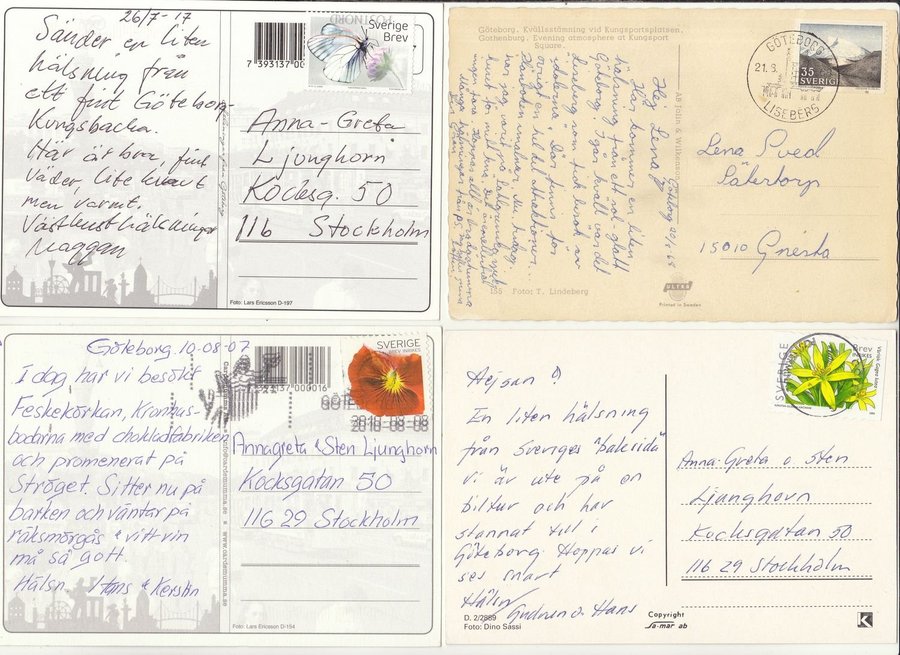 26/7-17
Sänder en liten
hälsning från
ett fint Göteborg-
Kungsbacka.
Här är bra, fint
väder, lite
men varmt.
Västkusthälsningar
Maggan
POSTNORD
Sverige
Brev
7 393137 00
Anna-Greta
Ljunghorn
Kocksg. 50
116 Stockholm
Foto: Lars Ericsson D-197
Göteborg. Kvällsstämning vid Kungsportsplatsen.
Gothenburg. Evening atmosphere at Kungsport
Square.
GÖTEBORG
21.6.
LISEBERG
35
SVERIGE
Göteborg 20/6 68
Hej Lena!
Här kommer en liten
hälsning från ett sol-glatt
Göteborg. I går kväll var det
Liseberg som fick besök av
"idolerna". Där finns för
övrigt en hel del attraktioner..
har jag varit på
AB Julin & Wilhemson
Lena Sved
Sätertorp
15010 Gnesta
155 Foto: T. Lindeberg
ULTRA
Printed in Sweden
Göteborg 10-08-07
I dag har vi besökt
Feskekörkan, Kronhus-
bodarna med chokladfabriken
och promenerat på
Ströget. Sitter nu på
barken och väntar på
räksmörgås & vitt vin
må så gott
Hälsn. Hans & Kerstin
SVERIGE
BREV INRIKES
93137 000016
2010-08-08
Annagreta & Sten Ljunghorn
Kocksgatan 50
116 29 Stockholm
www.cardemumma.se
Foto: Lars Ericsson D-154
Hejsan!
En liten hälsning
från Sveriges "baksida"
vi är ute på en
biltur och har
stannat till i
Göteborg. Hoppas vi
ses snart
Hälsn/ Gudrun o. Hans
D. 2/2889
Foto: Dino Sassi
Copyright
sa-mar ab
SVERIGE
Brev
INRIKES
Anna-Greta o. Sten
Ljunghorn
Kocksgatan 50
116 29 Stockholm
K